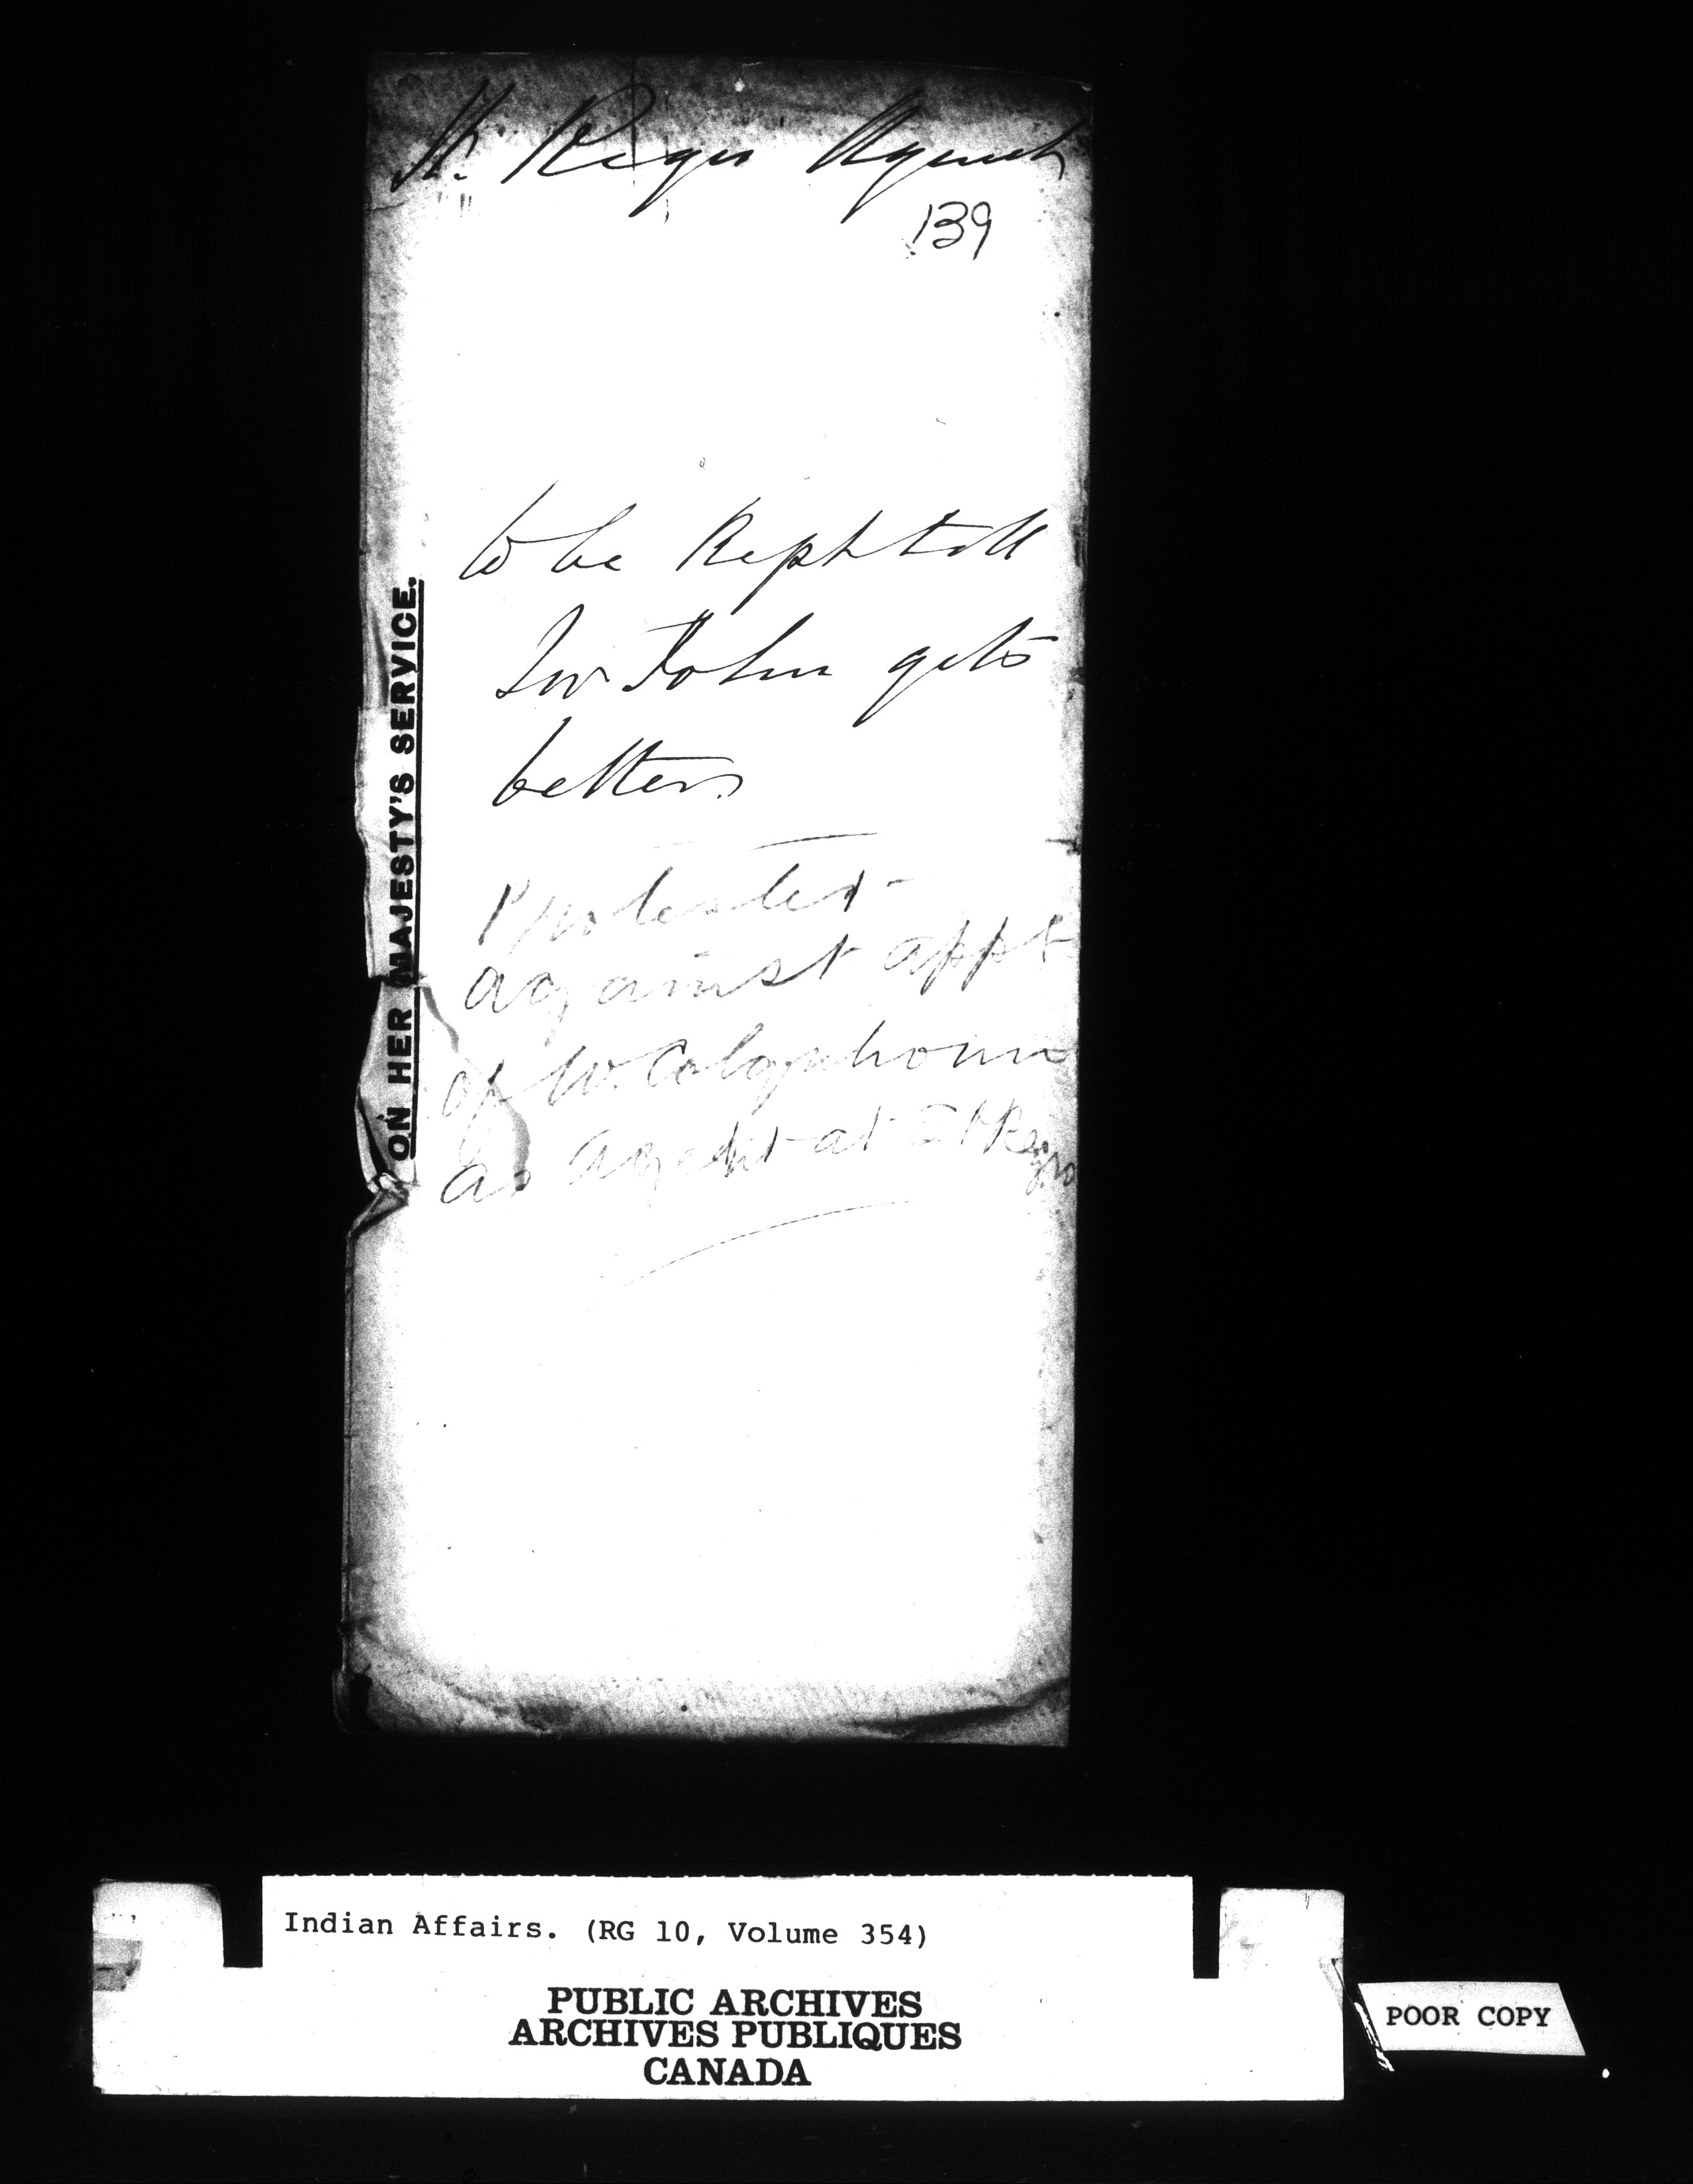 St. Regis Agency
139
to be Kept till
Sir John gets
better.
ON HER MAJESTY'S SERVICE.
Protester
against appt
of W. Colquhoun
as agent at St Regis
Indian Affairs. (RG 10, Volume 354)
PUBLIC ARCHIVES
ARCHIVES PUBLIQUES
CANADA
POOR COPY